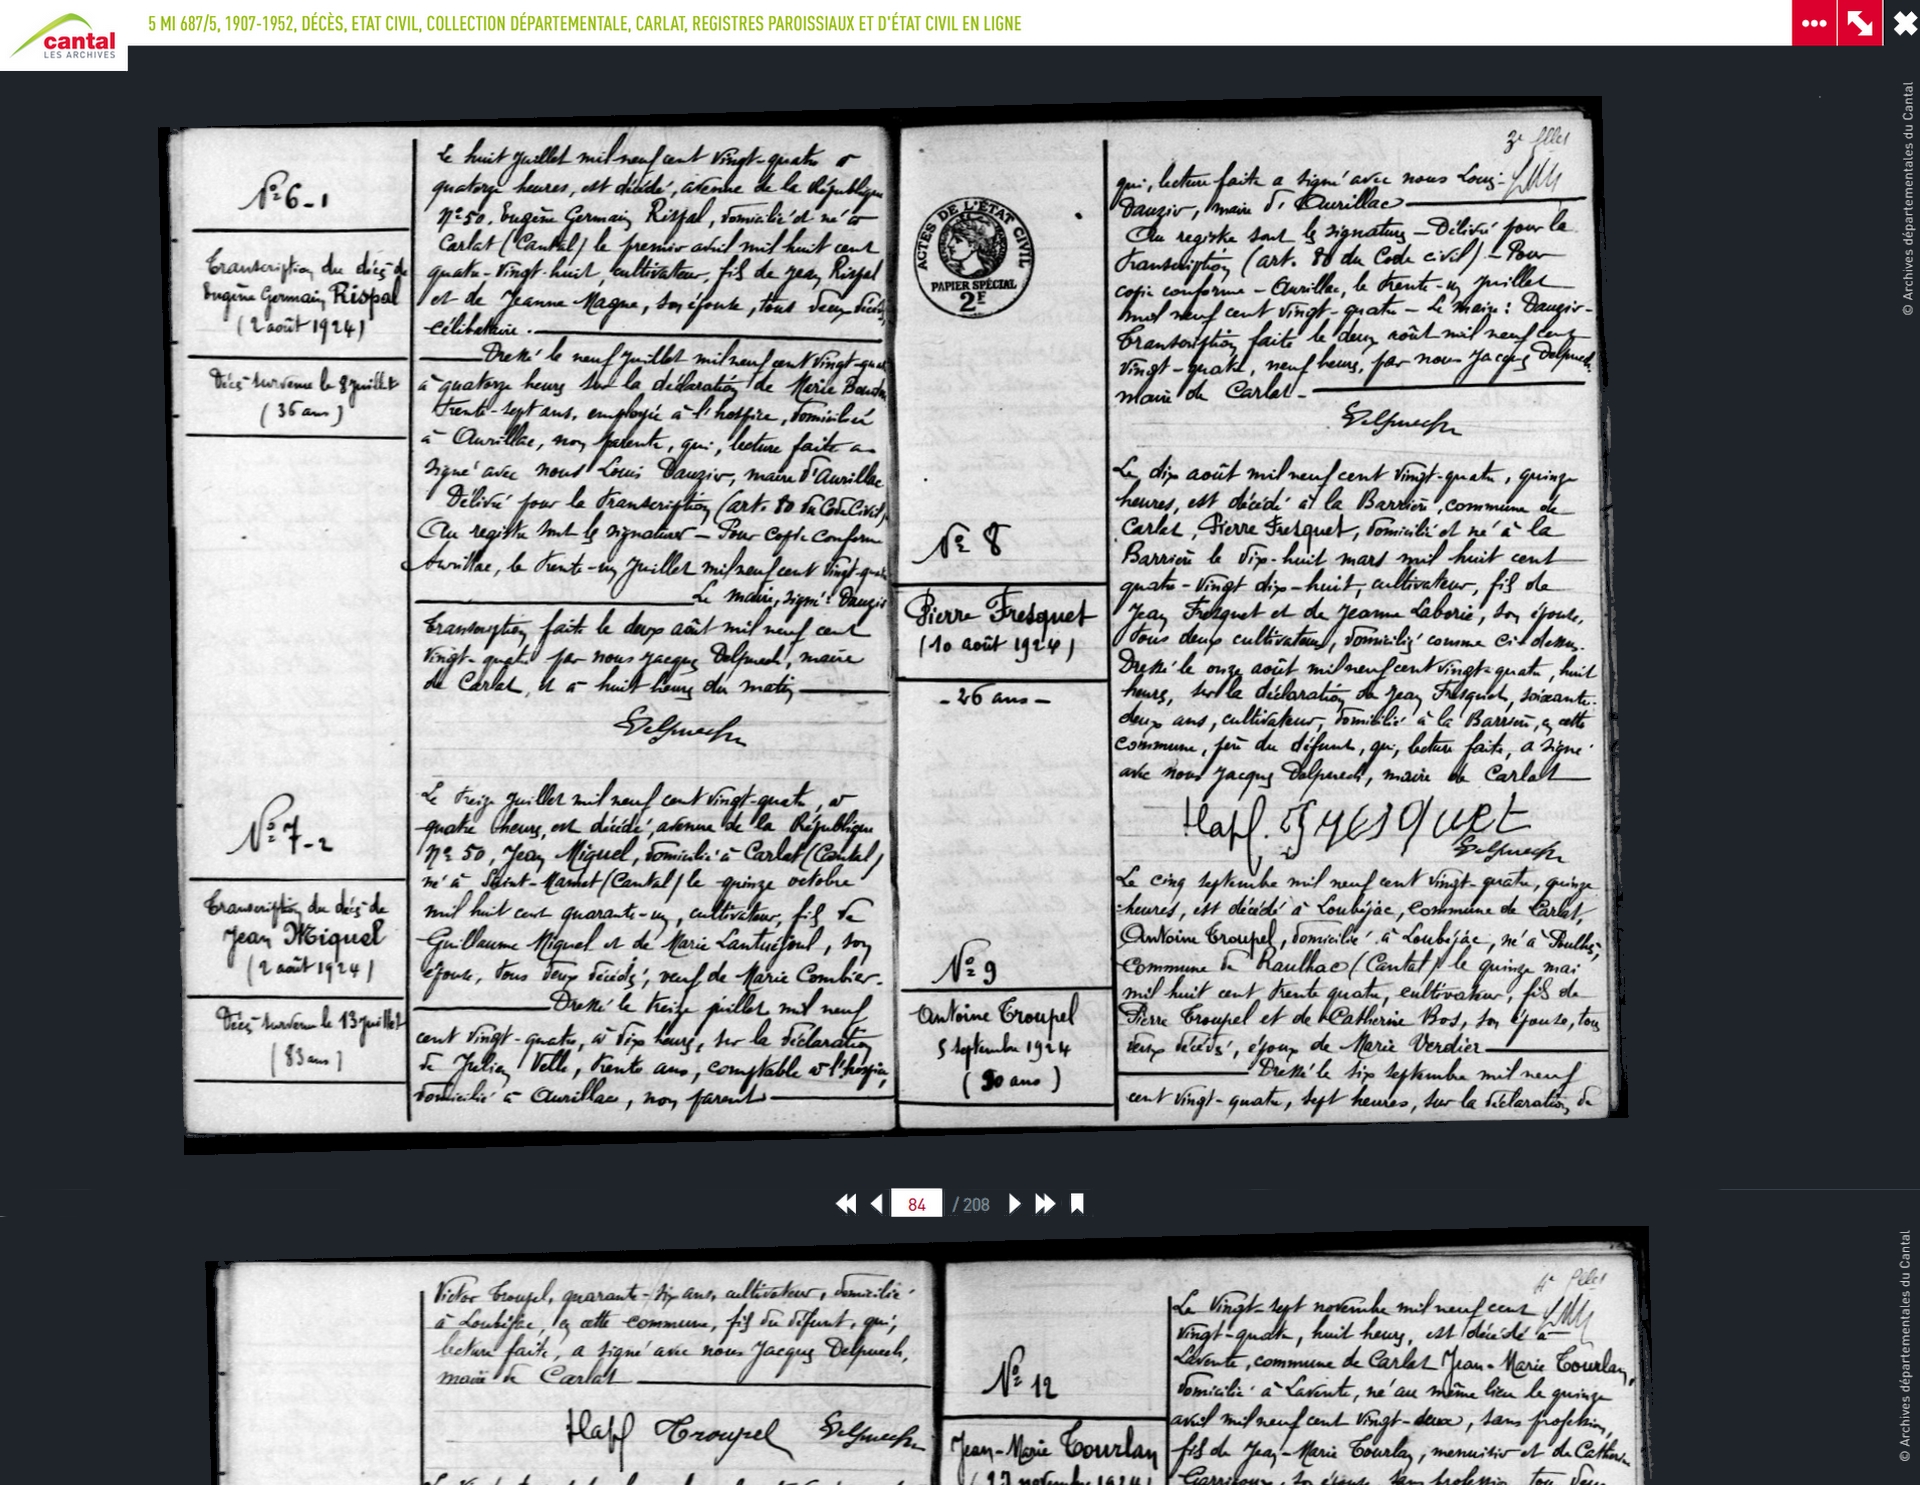 cantal
LES ARCHIVES
5 MI 687/5, 1907-1952, DÉCÈS, ETAT CIVIL, COLLECTION DÉPARTEMENTALE, CARLAT, REGISTRES PAROISSIAUX ET D'ÉTAT CIVIL EN LIGNE
© Archives départementales du Cantal
N° 6-1
Transcription du décès de
Eugène Germain Rispal
(2 août 1924)
Décès survenu le 8 juillet
(36 ans)
Le huit juillet mil neuf cent vingt-quatre à
quatorze heures, est décédé, avenue de la République
n° 50, Eugène Germain Rispal, domicilié et né à
Carlat (Cantal) le premier avril mil huit cent
quatre-vingt-huit, cultivateur, fils de Jean Rispal
et de Jeanne Magne, son épouse, tous deux décédés,
célibataire.
Dressé le neuf juillet mil neuf cent vingt-quatre
à quatorze heures sur la déclaration de Marie
trente-sept ans, employée à l'hospice, domiciliée
à Aurillac, non parente, qui, lecture faite a
signé avec nous Louis Dauzier, maire d'Aurillac
Délivré pour la transcription (art. 80 du Code Civil)
Au registre sont les signatures — Pour copie conforme
Aurillac, le trente-un juillet mil neuf cent vingt-quatre
Le maire, signé: Dauzier
Transcription faite le deux août mil neuf cent
vingt-quatre par nous Jacques Delpuech, maire
de Carlat, et à huit heures du matin
Delpuech
N° 7-2
Transcription du décès de
Jean Miquel
(2 août 1924)
Décès survenu le 13 juillet
(83 ans)
Le treize juillet mil neuf cent vingt-quatre, à
quatre heures, est décédé, avenue de la République
n° 50, Jean Miquel, domicilié à Carlat (Cantal)
né à Saint-Mamet (Cantal) le quinze octobre
mil huit cent quarante-un, cultivateur, fils de
Guillaume Miquel et de Marie Lantuéjoul, son
épouse, tous deux décédés, veuf de Marie Combier.
Dressé le treize juillet mil neuf
cent vingt-quatre, à dix heures, sur la déclaration
de Julien Velle, trente ans, comptable à l'hospice,
domicilié à Aurillac, non parent
ACTES DE L'ÉTAT CIVIL
PAPIER SPÉCIAL
2F
3e
qui, lecture faite a signé avec nous Louis
Dauzier, maire d'Aurillac
Au registre sont les signatures — Délivré pour la
transcription (art. 80 du Code civil) — Pour
copie conforme — Aurillac, le trente-un juillet
mil neuf cent vingt-quatre — Le maire: Dauzier —
Transcription faite le deux août mil neuf cent
vingt-quatre, neuf heures, par nous Jacques Delpuech,
maire de Carlat —
Delpuech
N° 8
Pierre Fresquet
(10 août 1924)
- 26 ans -
Le dix août mil neuf cent vingt-quatre, quinze
heures, est décédé à la Barrière, commune de
Carlat, Pierre Fresquet, domicilié et né à la
Barrière le dix-huit mars mil huit cent
quatre-vingt dix-huit, cultivateur, fils de
Jean Fresquet et de Jeanne Laborie, son épouse,
tous deux cultivateurs, domiciliés comme ci-dessus.
Dressé le onze août mil neuf cent vingt-quatre, huit
heures, sur la déclaration de Jean Fresquet, soixante-
deux ans, cultivateur, domicilié à la Barrière, en cette
commune, père du défunt, qui, lecture faite, a signé
avec nous Jacques Delpuech, maire de Carlat
Fresquet
Delpuech
N° 9
Antoine Troupel
5 septembre 1924
(90 ans)
Le cinq septembre mil neuf cent vingt-quatre, quinze
heures, est décédé à Loubéjac, commune de Carlat,
Antoine Troupel, domicilié à Loubéjac, né à
commune de Raulhac (Cantal) le quinze mai
mil huit cent trente quatre, cultivateur, fils de
Pierre Troupel et de Catherine Bos, son épouse, tous
deux décédés, époux de Marie Verdier
Dressé le six septembre mil neuf
cent vingt-quatre, sept heures, sur la déclaration de
84 / 208
Victor Troupel, quarante-six ans, cultivateur, domicilié
à Loubéjac, en cette commune, fils du défunt, qui,
lecture faite, a signé avec nous Jacques Delpuech,
maire de Carlat
Troupel Delpuech
4e
N° 12
Jean-Marie Tourlan
(27 novembre 1924)
Le vingt-sept novembre mil neuf cent
vingt-quatre, huit heures, est décédé à
Lavente, commune de Carlat Jean-Marie Tourlan,
domicilié à Lavente, né au même lieu le quinze
avril mil neuf cent vingt-deux, sans profession,
fils de Jean-Marie Tourlan, menuisier et de Catherine
son épouse, sans profession, tous deux
© Archives départementales du Cantal